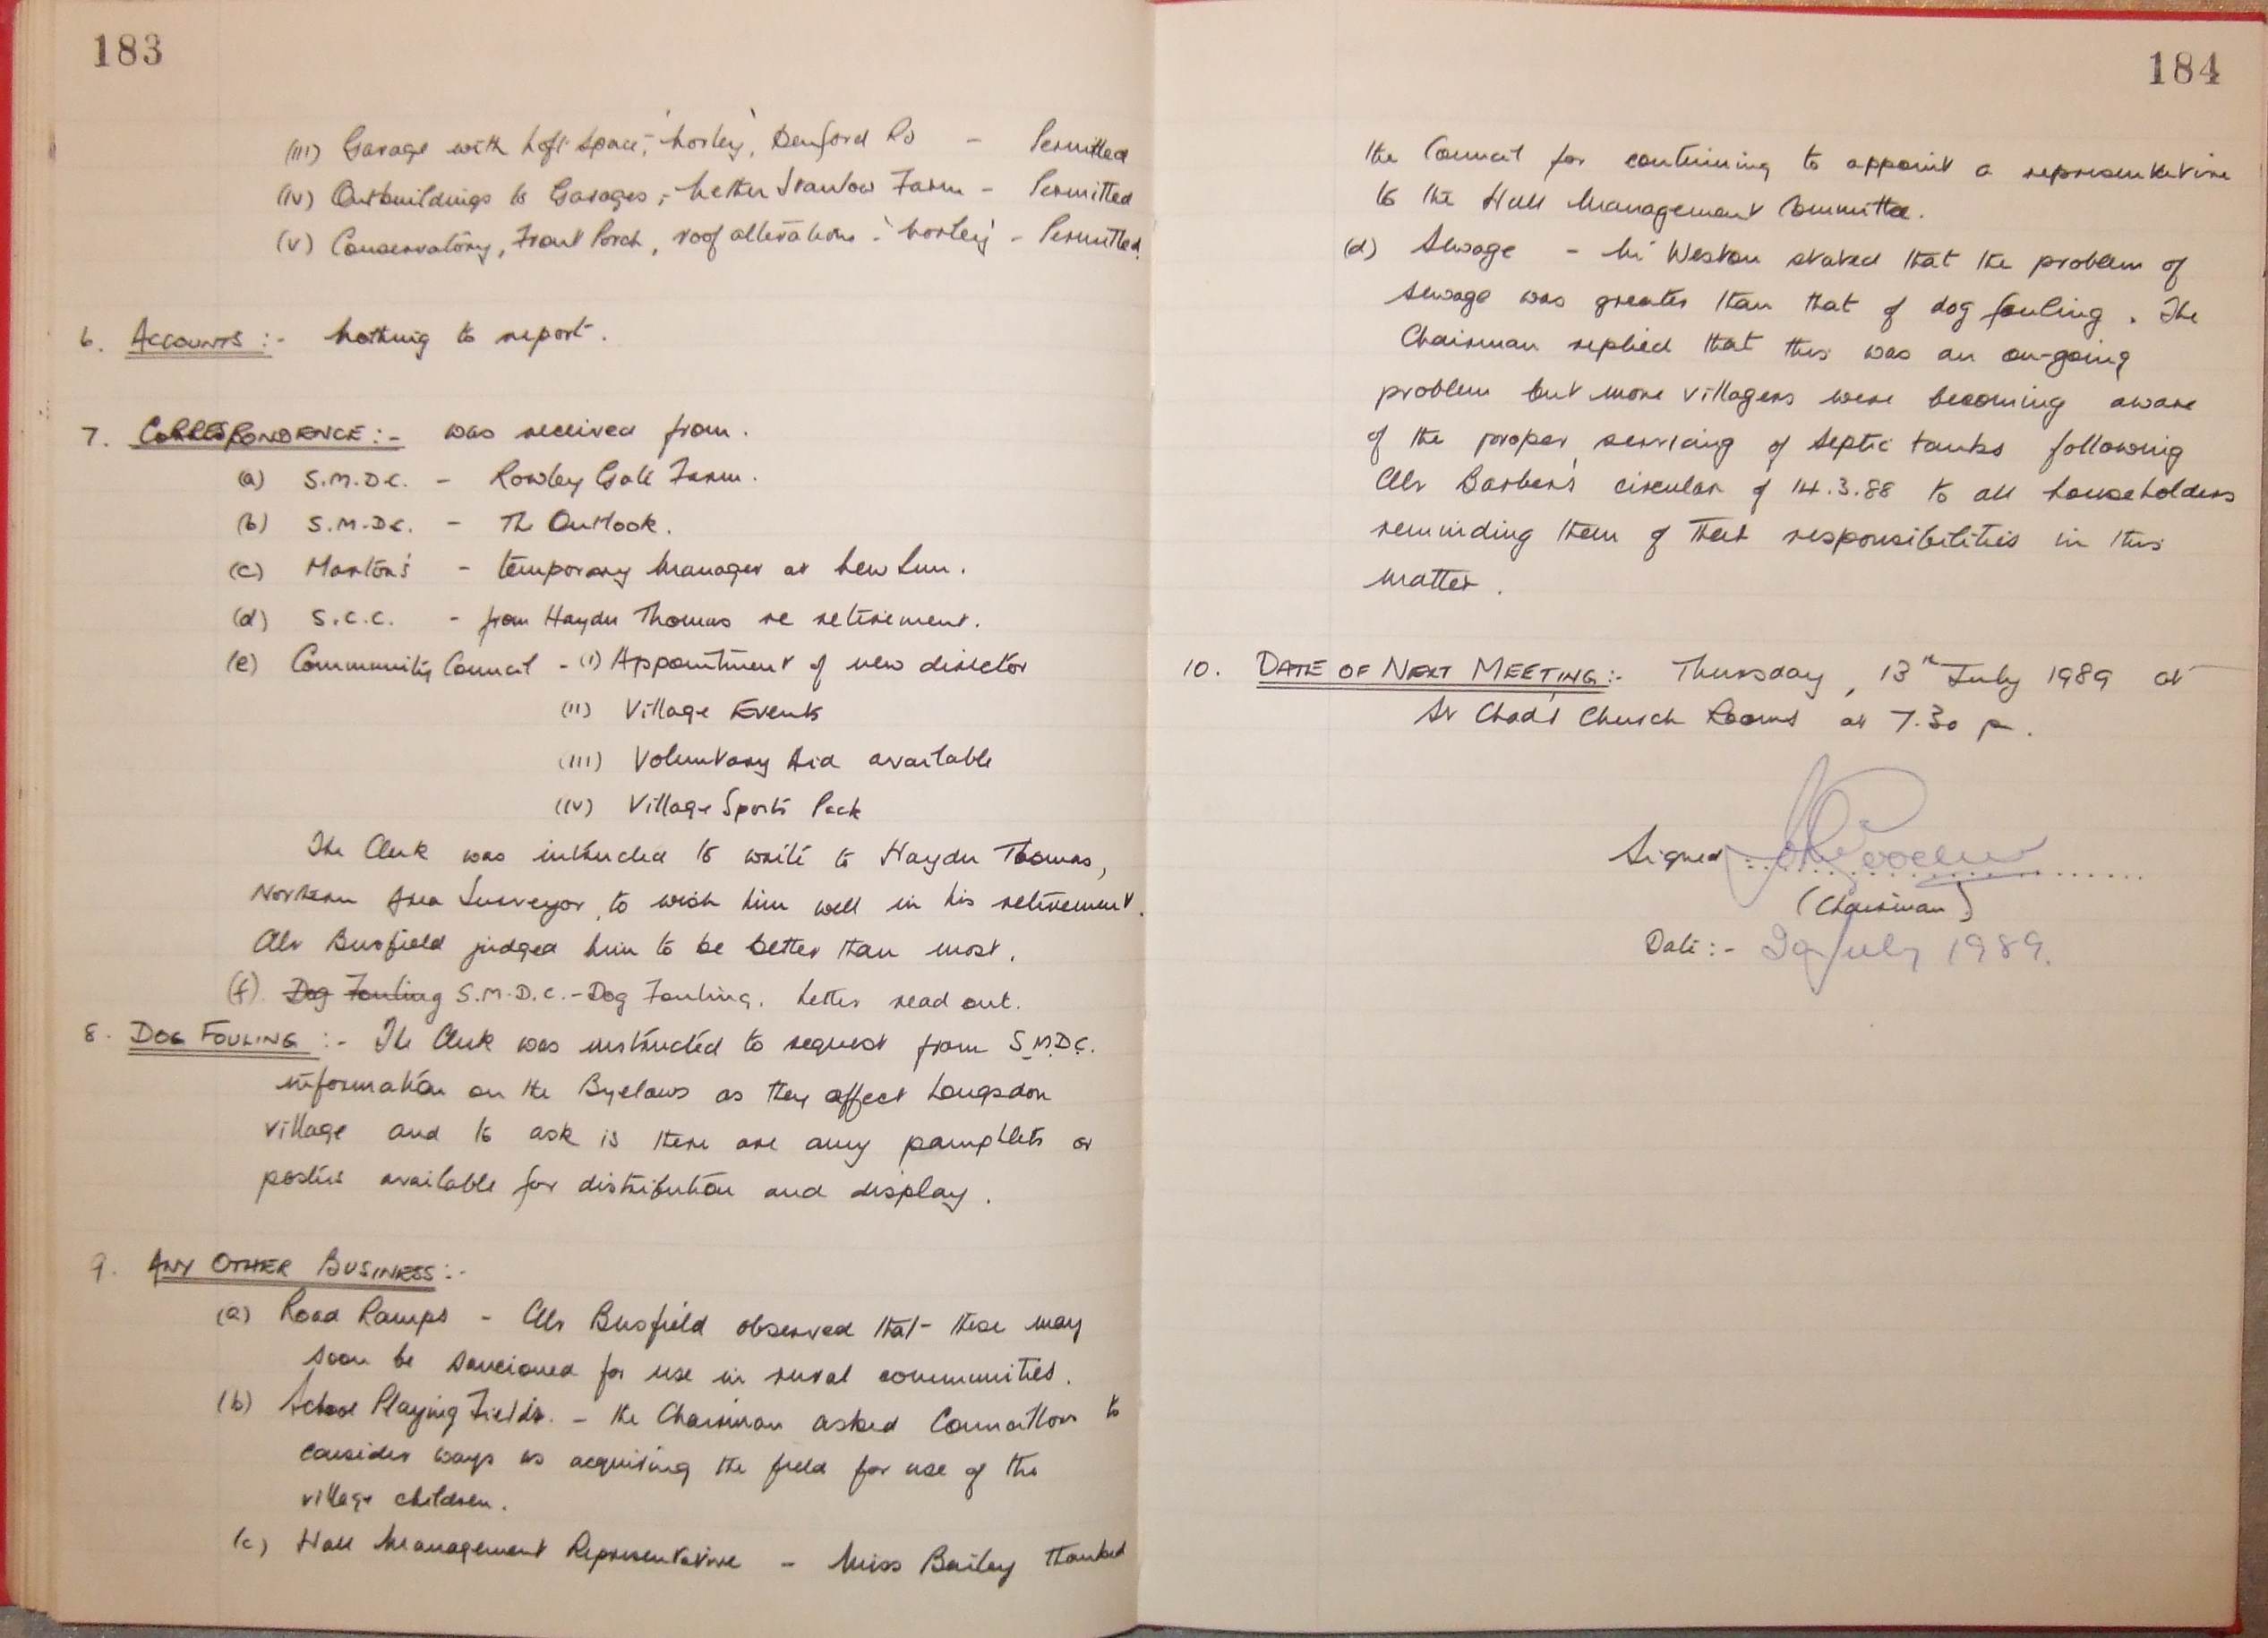 183
(III) Garage with Loft Space, - 'Morley', Denford Rd - Permitted
(IV) Outbuildings to Garages, - Nether Stanlow Farm - Permitted
(V) Conservatory, Front Porch, roof alterations - 'Morley' - Permitted.
6. ACCOUNTS :- Nothing to report.
7. CORRESPONDENCE :- was received from.
(a) S.M.D.C. - Rowley Gate Farm.
(b) S.M.D.C. - The Outlook.
(c) Marton's - temporary Manager at New Inn.
(d) S.C.C. - from Haydn Thomas re retirement.
(e) Community Council - (I) Appointment of new director
(II) Village Events
(III) Voluntary Aid available
(IV) Village Sports Pack
The Clerk was intructed to write to Haydn Thomas,
Northern Area Surveyor, to wish him well in his retirement.
Cllr Busfield judged him to be better than most.
(f) Dog Fouling S.M.D.C. - Dog Fouling. Letter read out.
8. DOG FOULING :- The Clerk was instructed to request from S.M.D.C.
information on the Byelaws as they affect Longsdon
village and to ask is there are any pamphlets or
posters available for distribution and display.
9. ANY OTHER BUSINESS :-
(a) Road Ramps - Cllr Busfield observed that these may
soon be sancioned for use in rural communities.
(b) School Playing Fields. - the Chairman asked Councillors to
consider ways is acquiring the field for use of the
village children.
(c) Hall Management Representative - Miss Bailey thanked
184
the Council for continuing to appoint a representative
to the Hall Management Committee.
(d) Sewage - Mr Weston stated that the problem of
sewage was greater than that of dog fouling. The
Chairman replied that this was an on-going
problem but more villagers were becoming aware
of the proper servicing of septic tanks following
Cllr Barber's circular of 14.3.88 to all householders
reminding them of their responsibilities in this
matter.
10. DATE OF NEXT MEETING :- Thursday, 13th July 1989 at
St Chad's Church Rooms at 7.30 pm.
Signed :
(Chairman)
Date :- July 1989.